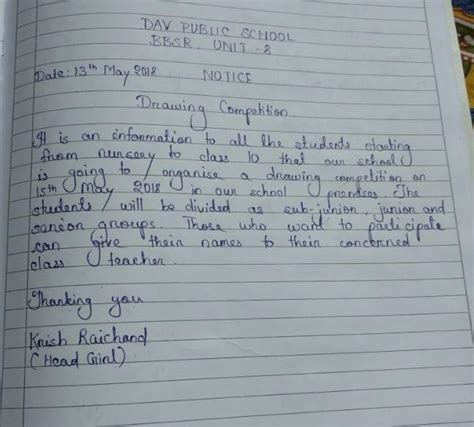 DAV PUBLIC SCHOOL
BBSR. UNIT - 8
Date: 13th May 2018 NOTICE
Drawing Competition
It is an information to all the students starting
from nursery to class 10 that our school
is going to organise a drawing competition on
15th May 2018 in our school premises. The
students will be divided as sub-junior, junior and
senior groups. Those who want to participate
can give their names to their concerned
class teacher.
Thanking you
Krish Raichand
(Head Girl)